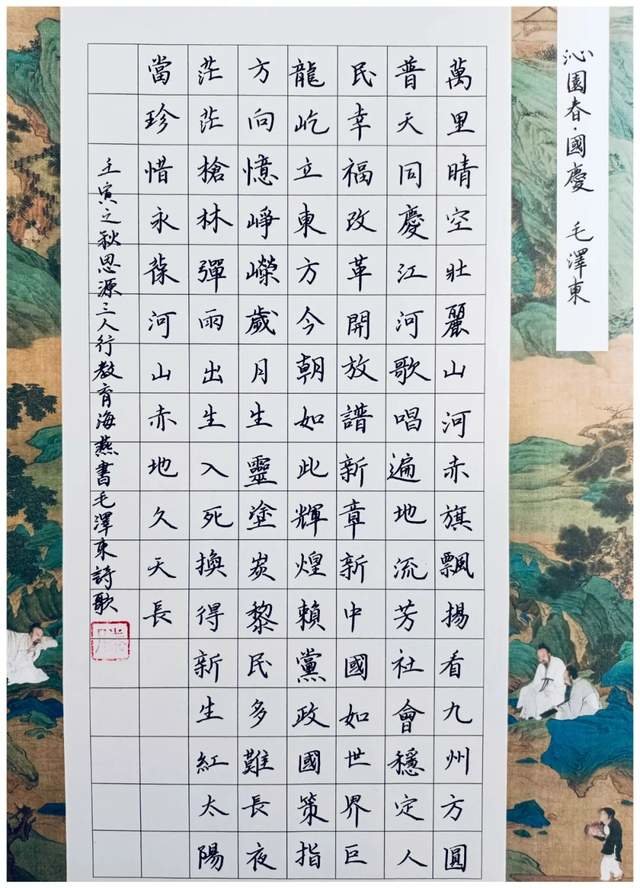 沁園春·國慶 毛澤東
萬里晴空壯麗山河赤旗飄揚看九州方圓
普天同慶江河歌唱遍地流芳社會穩定人
民幸福改革開放譜新章新中國如世界巨
龍屹立東方今朝如此輝煌賴黨政國策指
方向憶崢嶸歲月生靈塗炭黎民多難長夜
茫茫槍林彈雨出生入死換得新生紅太陽
當珍惜永葆河山赤地久天長
壬寅之秋思源三人行教育海燕書毛澤東詩歌